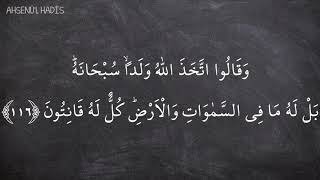 AHSENÜ'L HADİS
وَقَالُوا اتَّخَذَ اللّٰهُ وَلَداًۙ سُبْحَانَهُۜ
بَلْ لَهُ مَا فِى السَّمٰوَاتِ وَالْاَرْضِۜ كُلٌّ لَهُ قَانِتُونَ ﴿١١٦﴾